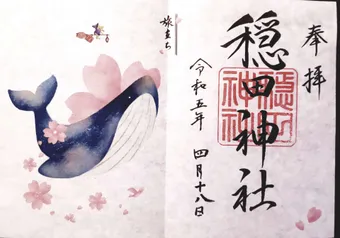 奉拝
穏田神社
令和五年 四月十八日
旅立ち
穏田神社